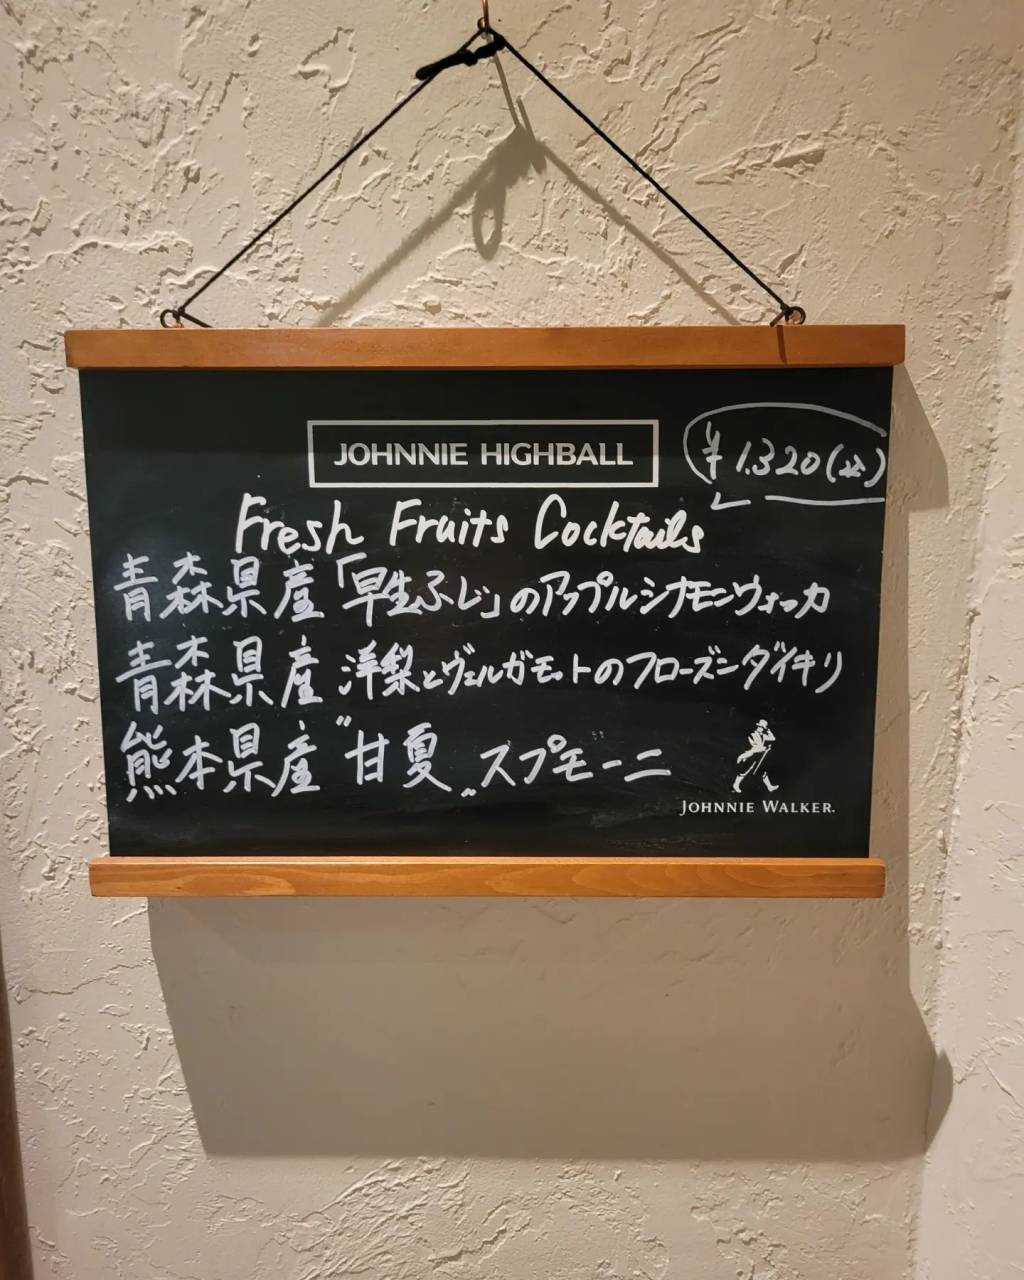 JOHNNIE HIGHBALL
¥1.320(込)
Fresh Fruits Cocktails
青森県産「早生ふじ」のアップルシナモンウォッカ
青森県産 洋梨とヴェルガモットのフローズンダイキリ
熊本県産"甘夏"スプモーニ
JOHNNIE WALKER.